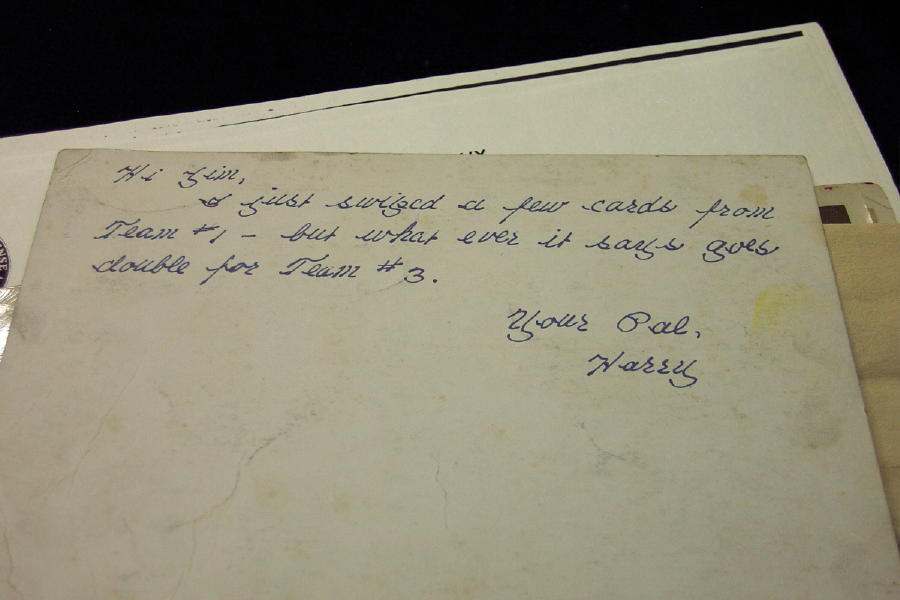 Hi Jim,
I just swiped a few cards from
Team #1 - but what ever it says goes
double for Team #3.
Your Pal,
Harry